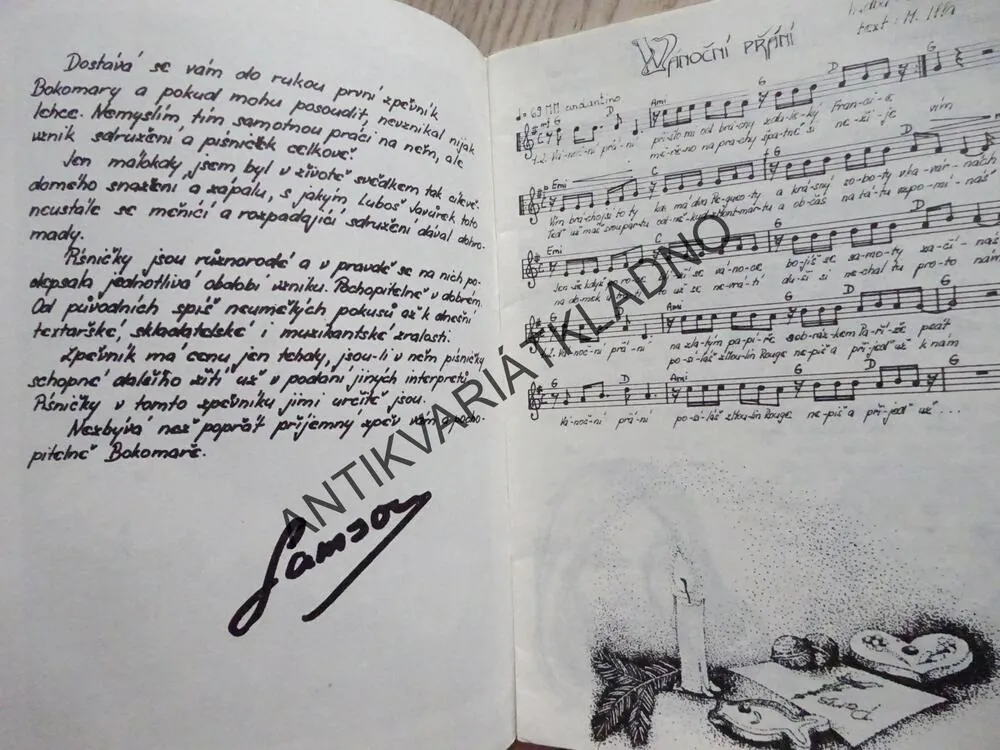 Dostává se vám do rukou první zpěvník
Bokomary a pokud mohu posoudit, nevznikal nijak
lehce. Nemyslím tím samotnou práci na něm, ale
vznik sdružení a písniček celkově.
Jen málokdy jsem byl v životě svědkem tak cílevě-
domého snažení a zápalu, s jakým Luboš Javůrek toto
neustále se měnící a rozpadající sdružení dával dohro-
mady.
Písničky jsou různorodé a v pravdě se na nich po-
depsala jednotlivá období vzniku. Pochopitelně v dobrém.
Od původních spíš neumělých pokusů až k dnešní
textařské, skladatelské i muzikantské zralosti.
Zpěvník má cenu jen tehdy, jsou-li v něm písničky
schopné dalšího žití už v podání jiných interpretů.
Písničky v tomto zpěvníku jimi určitě jsou.
Nezbývá než popřát příjemný zpěv vám a pocho-
pitelně Bokomaře.
Samson
ANTIKVARIÁTKLADNO
VÁNOČNÍ PŘÁNÍ
text: M.
♩= 69 M.M. andantino
Ami G D G
1.2. Vá-noč-ní přá-ní při-šlo mi od brá-ny z da-le-ký Fran-ci-e, vím
mě-ře-no na pra-chy špat-ně si ne-ži-je
Emi C G D
Vím brácho jsi to ty kas má dva Pe-gueo-ty a krás-ný so-bo-ty v ka-vár-nách
Teď už máš svou pár-tu od-ně-kud z Mont-már-tu a ob-čas na ta-tu vzpo-mí-náš
Emi C G D
Jen že když po ro- už se vá-no-ce bo-jíš se sa-mo-ty za-čí-náš
na do-mek se ne-vrá-tí du-ši si ne-chal tu pro-to nám
G D Ami G D G
1.2. Vá-noč-ní přá-ní na zla-tým pa-pí-ře s ob-ráz-kem Pa-ří-že psát
po-sí-láš z Mou-lin Rouge ne-piš a při-jeď už k nám
G D Ami G D G
Vá-noč-ní přá-ní po-sí-láš z Mou-lin Rouge ne-piš a při-jeď už ...